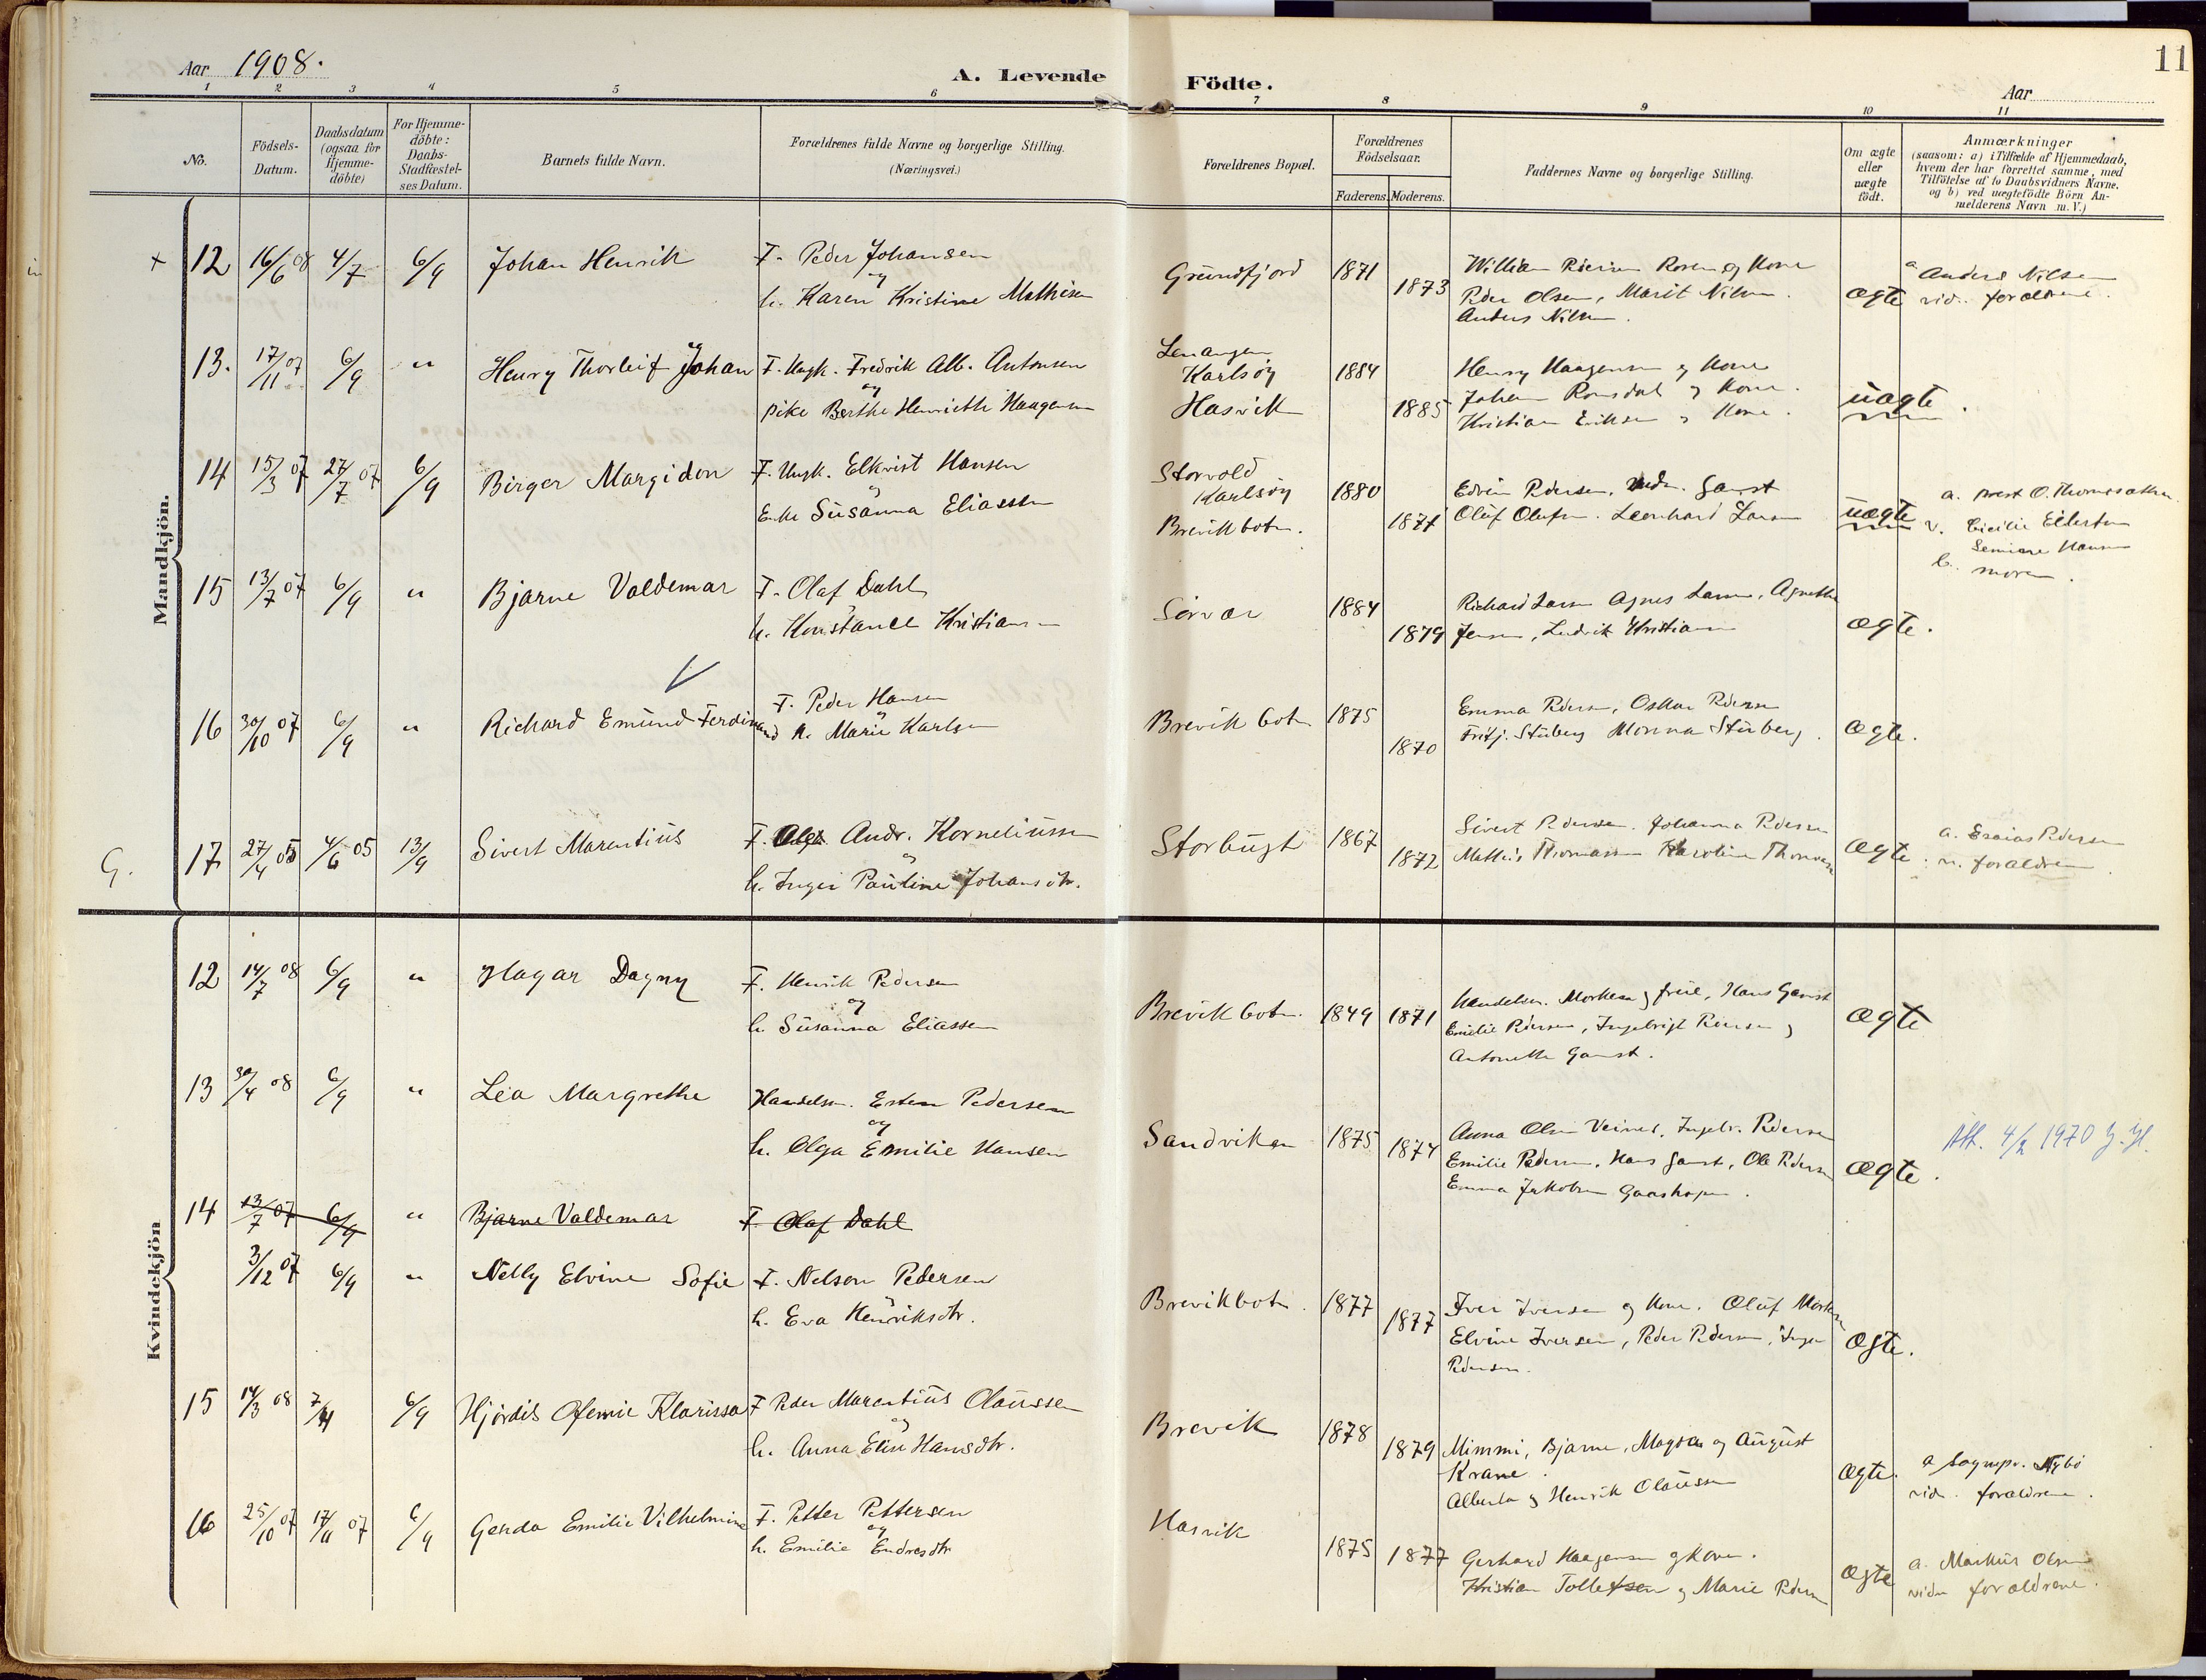 Aar 1908.
A. Levende Födte.
Aar
11
1 2 3 4 5 6 7 8 9 10 11
No.
Födsels-Datum.
Daabsdatum (ogsaa for Hjemme-döbte)
For Hjemme-döbte: Daabs-Stadfæstel-ses Datum.
Barnets fulde Navn.
Forældrenes fulde Navne og borgerlige Stilling.
(Næringsvei.)
Forældrenes Bopæl.
Forældrenes Födselsaar.
Faderens. Moderens.
Faddernes Navne og borgerlige Stilling.
Om ægte eller uægte födt.
Anmærkninger
(saasom: a) i Tilfælde af Hjemmedaab,
hvem der har forrettet samme, med
Tilföielse af to Daabsvidners Navne.
og b) ved uægtefödte Börn An-
melderens Navn m.V.)
Mandkjön.
+ 12 16/6 08 4/7 6/9 Johan Henrik F. Peder Johansen
og
h. Karen Kristine Mathisen
Grundfjord 1871 1873
Peder Olsen, Marit Nilsen.
Anders Nilsen.
ægte
a Anders Nilsen
vid. forældrene.
13. 17/11 07 6/9 " Henry Thorleif Johan F. Ungk. Fredrik Alb. Antonsen
og
pike Berthe Henriette Haagensen
Karlsöy
Hasvik
1884 1885
Henry Haagensen og Kone
Johan Romsdal og Kone.
Kristian Eriksen og Kone.
uægte.
14 15/3 07 27/7 07 6/9 Birger Margidon F. Ungk. Elkvist Hansen
og
Enke Susanna Eliassen
Storvold
Karlsöy
Brevikbotn.
1880 1871
Edvin Pedersen, Gamst
Oluf Olufsen. Leonhard Larsen
uægte
a. prest O. Thomassen
v. Cicilie Eilertsen
Hansen
b. moren.
15 13/7 07 6/9 " Bjarne Valdemar F. Olaf Dahl
og
h. Konstance Kristiansen
Sörvær 1884 1879
Richard Larsen Agnes Larsen, Agnethe
Jensen, Ludvik Kristiansen
ægte.
16 30/10 07 6/9 " Richard Emund Ferdinand F. Peder Hansen
og
h. Marie Karlsen
Brevikbotn 1875 1870
Emma Pedersen, Oskar Pedersen
Fritj. Stüberg Monna Stüberg.
ægte.
G. 17 27/4 05 4/6 05 13/9 Sivert Marentius F. Andr. Korneliussen
og
h. Inger Pauline Johansdtr.
Storbugt 1867 1872
Sivert Pedersen. Johanna Pedersen
Mathis Thomassen Karoline Thomassen
ægte.
a. Esaias Pedersen
v. forældrene.
Kvindekjön
12 14/7 08 6/9 " Hagar Dagny F. Henrik Pedersen
og
h. Susanna Eliassen
Brevikbotn. 1849 1871
Handelsm. Morkesen og frue, Hans Gamst
Emilie Pedersen, Ingebrigt Pedersen og
Antonette Gamst.
ægte
13 30/4 08 6/9 " Lea Margrethe Handelsm. Esten Pedersen
og
h. Olga Emilie Hansen
Sandviken 1875 1874
Anna Olsen Veines, Ingebr. Pedersen
Emilie Pedersen, Hans Gamst, Ole Pedersen
Emma Jakobsen Gaashopen.
ægte.
Att. 4/2 1970
14 13/7 07 6/9 " Bjarne Valdemar F. Olaf Dahl
3/12 07 6/9 " Nelly Elvine Sofie F. Nelson Pedersen
og
h. Eva Henriksdtr.
Brevikbotn. 1877 1877
Iver Iversen og Kone. Oluf Mortensen
Elvine Iversen, Peder Pedersen, Inger
Pedersen.
ægte.
15 14/3 08 7/4 6/9 Hjördis Ofemie Klarissa F. Peder Marentius Olaussen
og
h. Anna Elise Hansdtr.
Brevik 1878 1879
Mimmi, Bjarne, Magda og August
Krane.
Alberta og Henrik Olaussen
ægte.
a Sognepr. Nybö
vid. forældrene.
16 25/10 07 17/11 07 6/9 Gerda Emilie Vilhelmine F. Petter Pettersen
og
h. Emilie Endresdtr
Hasvik 1875 1877
Gerhard Haagensen og Kone.
Kristian Tollefsen og Marie Pedersen
ægte
a. Markus Olsen
vidn forældrene.